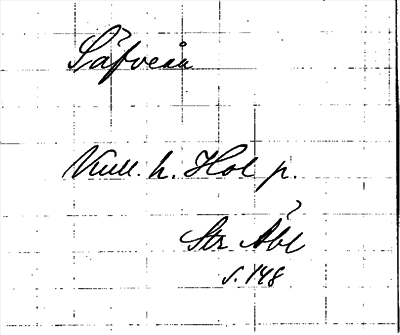 Säfveån
Kull. h. Hol p.
Str Åbl
s. 148